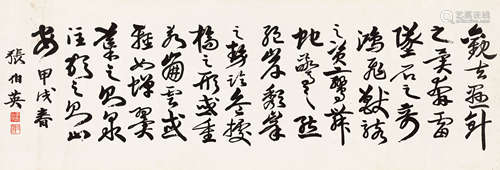 觀夫懸針
之異奔雷
墜石之奇
鴻飛獸駭
之資鸞舞
蛇驚之態
絕岸頹峯
之勢臨危據
槁之形或重
若崩雲或
輕如蟬翼
導之則泉
注頓之則山
安 甲戌春
張伯英